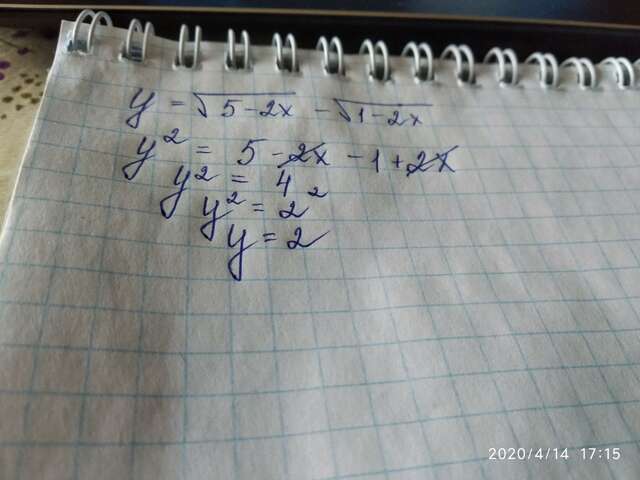 y = √5-2x - √1-2x
y² = 5-2x - 1+2x
y² = 4
y² = 2²
y = 2
2020/4/14 17:15